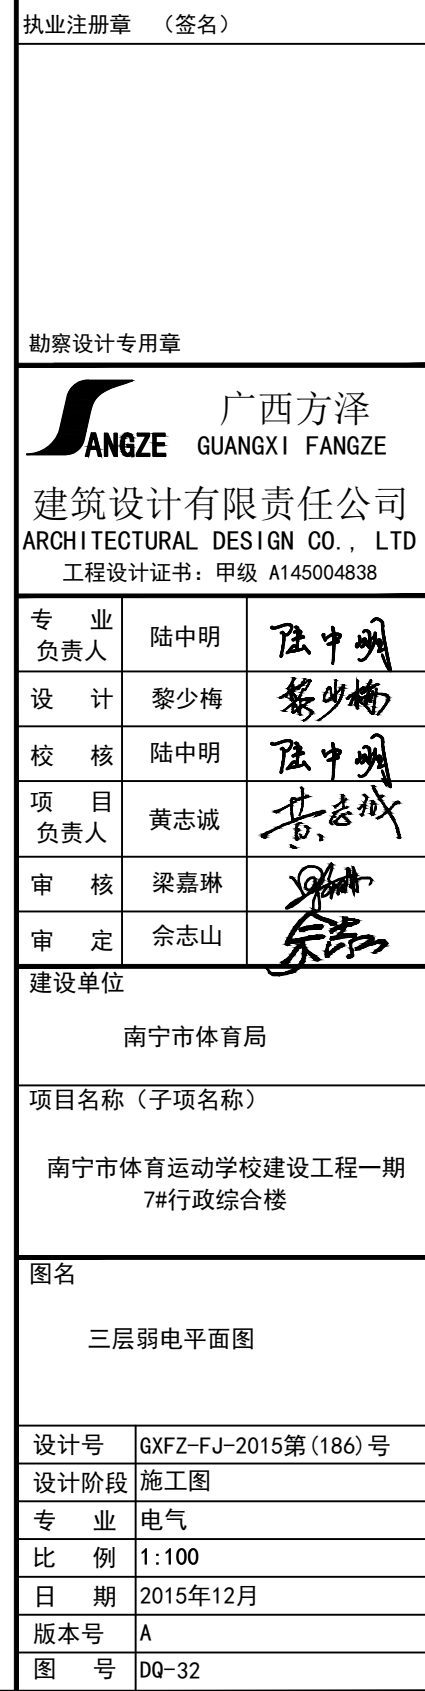 执业注册章 （签名）
勘察设计专用章
ANGZE
广西方泽
GUANGXI FANGZE
建筑设计有限责任公司
ARCHITECTURAL DESIGN CO., LTD
工程设计证书：甲级 A145004838
专 业
负责人 陆中明 陆中明
设 计 黎少梅 黎少梅
校 核 陆中明 陆中明
项 目
负责人 黄志诚 黄志诚
审 核 梁嘉琳
审 定 佘志山 佘志山
建设单位
南宁市体育局
项目名称（子项名称）
南宁市体育运动学校建设工程一期
7#行政综合楼
图名
三层弱电平面图
设计号 GXFZ-FJ-2015第(186)号
设计阶段 施工图
专 业 电气
比 例 1:100
日 期 2015年12月
版本号 A
图 号 DQ-32